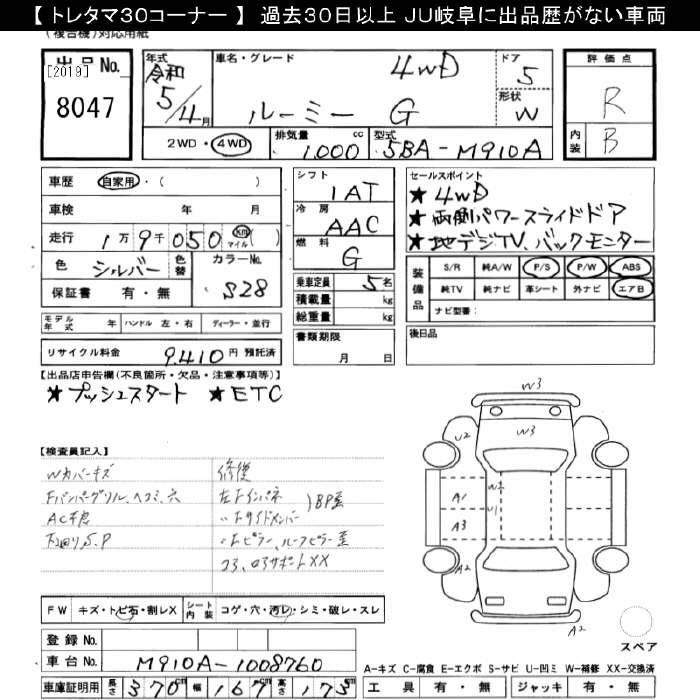 【 トレタマ30コーナー 】 過去30日以上 JU岐阜に出品歴がない車両
(複合機)対応用紙
出品No.
[2019]
8047
年式 令和 5/4月
車名・グレード 4WD
ルーミー G
ドア 5
形状 W
評価点 R
内装 B
2WD・4WD
排気量 1,000 cc
型式 5BA-M910A
車歴 自家用・( )
車検 年 月
走行 1万9千050 km マイル ( )
色 シルバー 色替 カラーNo. S28
保証書 有・無
シフト 1AT
冷房 AAC
燃料 G
乗車定員 5名
積載量 kg
総重量 kg
書類期限 月 日
セールスポイント
★4WD
★両側パワースライドドア
★地デジTV、バックモニター
装備品
S/R 純A/W P/S P/W ABS
純TV 純ナビ 革シート 外ナビ エアB
ナビ型番:
後日品
モデル年式 年 ハンドル 左・右 ディーラー・並行
リサイクル料金 9,410 円 預託済
【出品店申告欄(不良箇所・欠品・注意事項等)】
★プッシュスタート ★ETC
【検査員記入】
Wカバーキズ
Fバンパーグリル、ヘコミ、穴
下回りS、P
修復
左Fインパネ
〃Fサイドメンバー
BP歪
〃Fピラー、ルーフピラー歪
コア、ロアサポートXX
W3
W3
U2
A1
U1
A3
A2
A2
FW キズ・トビ石・割レX
シート内装 コゲ・穴・汚レ・シミ・破レ・スレ
登録No.
車台No. M910A-1008760
車庫証明用 長さ 370cm 幅 167cm 高さ 173cm
スペア
A-キズ C-腐食 E-エクボ S-サビ U-凹ミ W-補修 XX-交換済
工具 有・無 ジャッキ 有・無